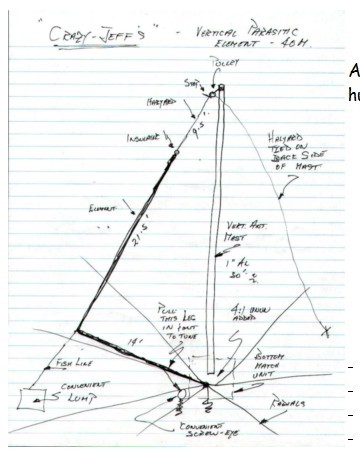 CRAZY-JEFF'S" - VERTICAL PARASITIC
ELEMENT - 40M.
PULLEY
STAY
HALYARD
9.5'
INSULATOR
HALYARD
TIED ON
BACK SIDE
OF MAST
ELEMENT
21.5'
VERT. ANT.
MAST
1" AL
30'
PULL
THIS LEG
IN/OUT
TO TUNE
4:1 UNUN
ADDED
14'
FISH LINE
BOTTOM
MATCH
UNIT
CONVENIENT
LUMP
RADIALS
CONVENIENT
SCREW-EYE
A
hu